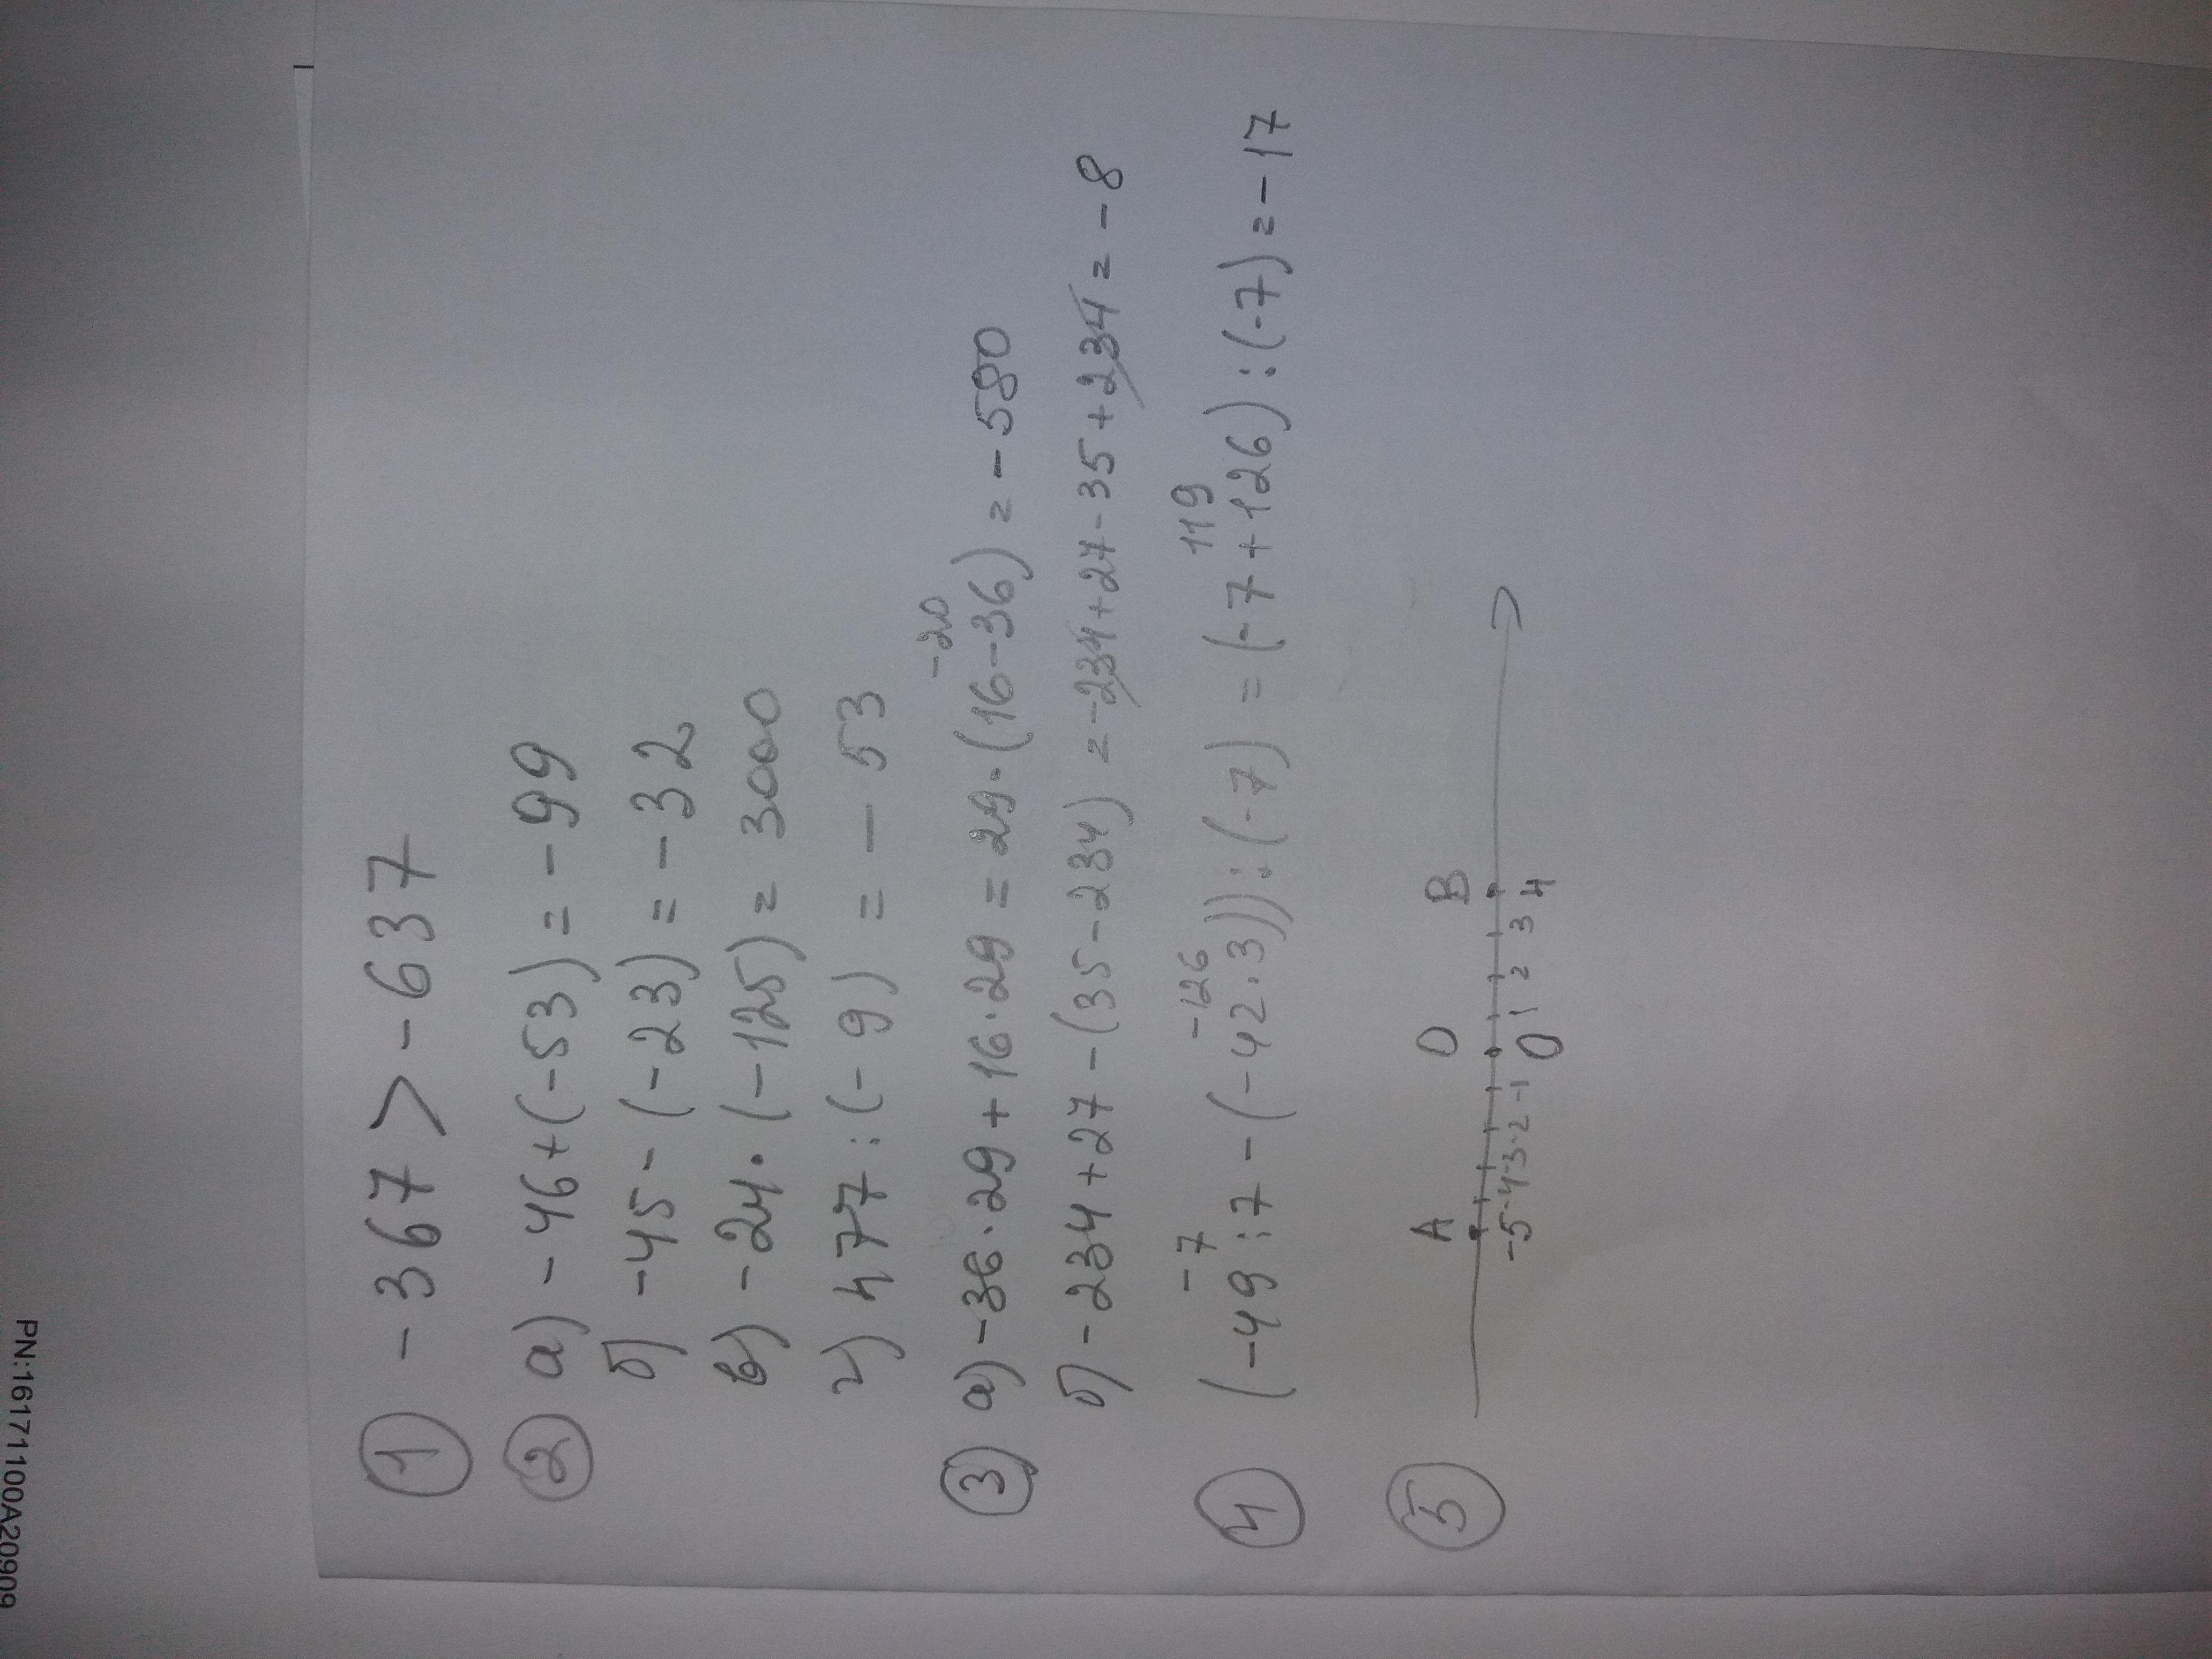 1 -367 > -637
2 а) -46+(-53) = -99
б) -45-(-23) = -32
в) -24·(-125) = 3000
г) 477:(-9) = -53
-20
3 а) -36·29+16·29 = 29·(16-36) = -580
б) -234+27-(35-234) = -234+27-35+234 = -8
-7 -126 119
4 (-49:7-(-42·3)):(-7) = (-7+126):(-7) = -17
5 A O B
-5 -4 -3 -2 -1 0 1 2 3 4
PN:16171100A20909